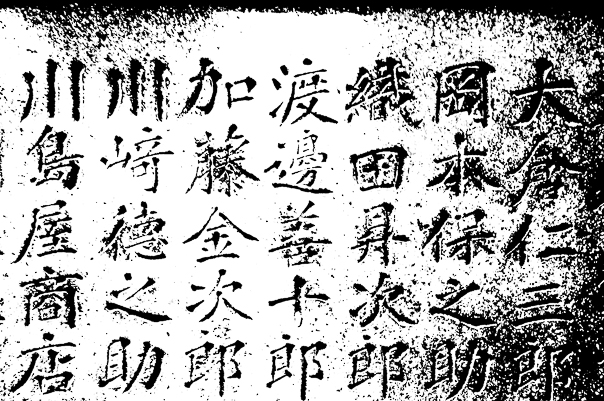 大倉仁三郎
岡本保之助
織田昇次郎
渡邊善十郎
加藤金次郎
川崎德之助
川島屋商店